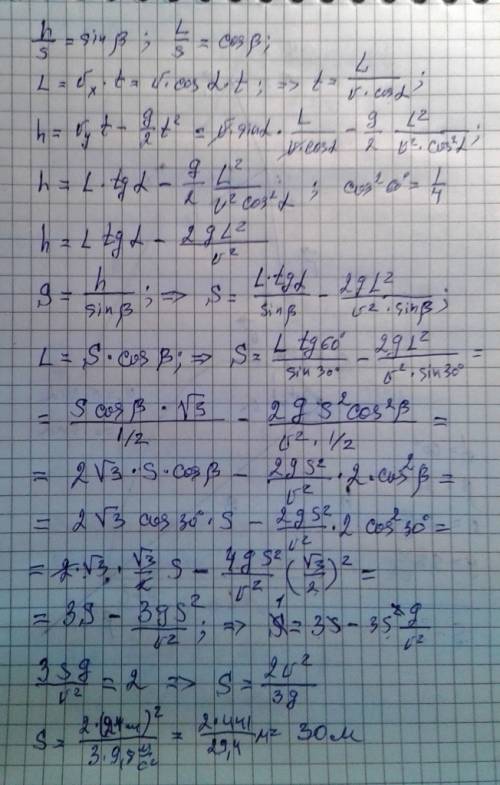 h/s = sin β ; L/s = cos β;
L = v_x · t = v · cos α · t; => t = L/(v · cos α);
h = v_y t − g/2 t² = v·sin α · L/(v·cos α) − g/2 L²/(v²·cos²α);
h = L·tg α − g/2 L²/(v² cos²α) ; cos²60° = 1/4
h = L tg α − 2gL²/v²
S = h/sin β ; => S = L·tg α/sin β − 2gL²/(v²·sin β);
L = S·cos β; => S = L tg 60°/sin 30° − 2gL²/(v²·sin 30°) =
= S cos β · √3/(1/2) − 2g S² cos²β/(v² · 1/2) =
= 2√3 · S · cos β − 2gS²/v² · 2 · cos²β =
= 2√3 cos 30° · S − 2gS²/v² · 2 cos²30° =
= 2·√3 · √3/2 S − 4gS²/v² (√3/2)² =
= 3S − 3gS²/v² ; => S = 3S − 3S² g/v²
3Sg/v² = 2 => S = 2v²/3g
S = = 2·441/29,4 м = 30 м